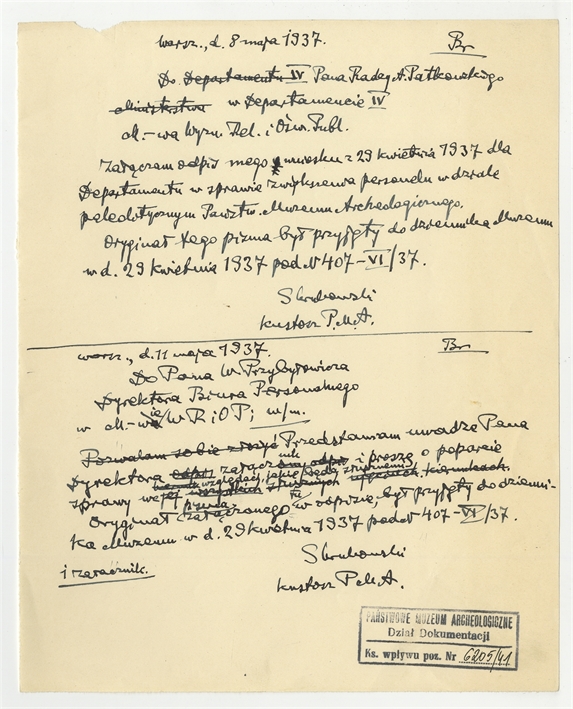 Warsz., d. 8 maja 1937.
Br
Do Departamentu IV Pana Radcy A. Patkowskiego
Ministerstwa w Departamencie IV
M.-wa Wyzn. Rel. i Ośw. Publ.
Załączam odpis mego wniosku z 29 kwietnia 1937 dla
Departamentu w sprawie zwiększenia personelu w dziale
paleolitycznym Państw. Muzeum Archeologicznego.
Oryginał tego pisma był przyjęty do dziennika Muzeum
w d. 29 kwietnia 1937 pod N 407-VI/37.
S Krukowski
Kustosz P.M.A.
Warsz., d. 11 maja 1937.
Br
Do Pana W Przybyłowicza
Dyrektora Biura Personalnego
w M-wie W R i O P; w/m.
Pozwalam sobie złożyć Przedstawiam uwadze Pana
Dyrektora odpis załącznik i proszę o poparcie
sprawy w jej
Oryginał załączonego w odpisie, był przyjęty do dzienni-
ka Muzeum w d. 29 kwietnia 1937 pod N 407-VI/37.
S Krukowski
1 załącznik.
Kustosz P.M.A.
PAŃSTWOWE MUZEUM ARCHEOLOGICZNE
Dział Dokumentacji
Ks. wpływu poz. Nr 6205/41